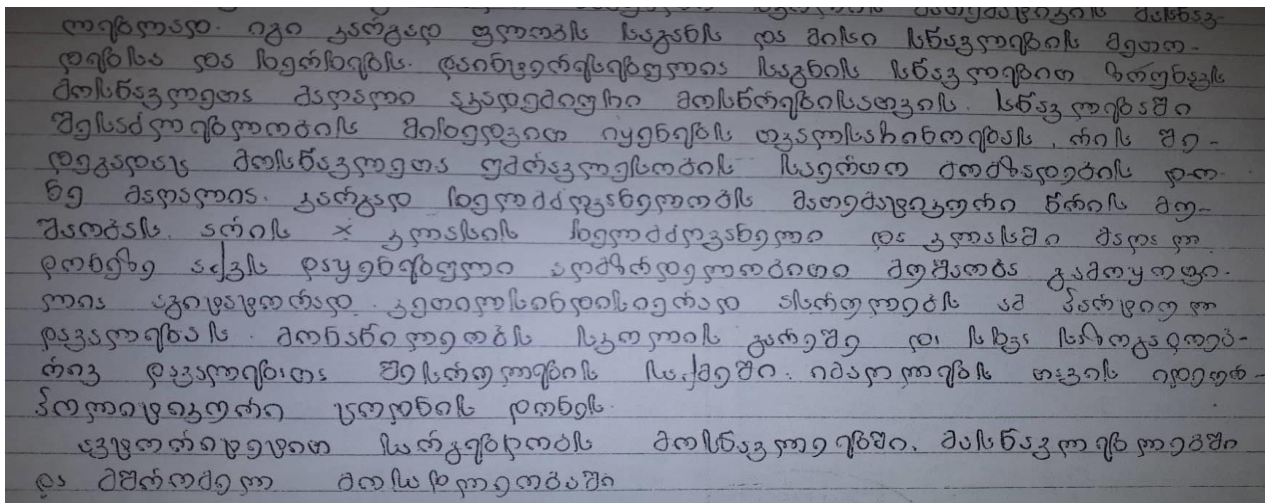 მათემატიკის მასწავ-
ლებლად. იგი კარგად ფლობს საგანს და მისი სწავლების მეთო-
დებსა და ხერხებს. დაინტერესებულია საგნის სწავლებით ზრუნავს
მოსწავლეთა მაღალი აკადემიური მოსწრებისათვის. სწავლებაში
შესაძლებლობის მიხედვით იყენებს თვალსაჩინოებას, რის შე-
დეგადაც მოსწავლეთა უმრავლესობის საერთო მომზადების დო-
ნე მაღალია. კარგად ხელმძღვანელობს მათემატიკური წრის მუ-
შაობას. არის X კლასის ხელმძღვანელი და კლასში მაღალ
დონეზე აქვს დაყენებული აღმზრდელობითი მუშაობა გამოყოფი-
ლია აგიტატორად. კეთილსინდისიერად ასრულებს ამ პარტიულ
დავალებას. მონაწილეობს სკოლის გარეშე და სხვა საზოგადოებ-
რივ დავალებათა შესრულების საქმეში. იმაღლებს თავის იდეურ-
პოლიტიკური ცოდნის დონეს.
ავტორიტეტით სარგებლობს მოსწავლეებში, მასწავლებლებში
და მშრომელ მოსახლეობაში